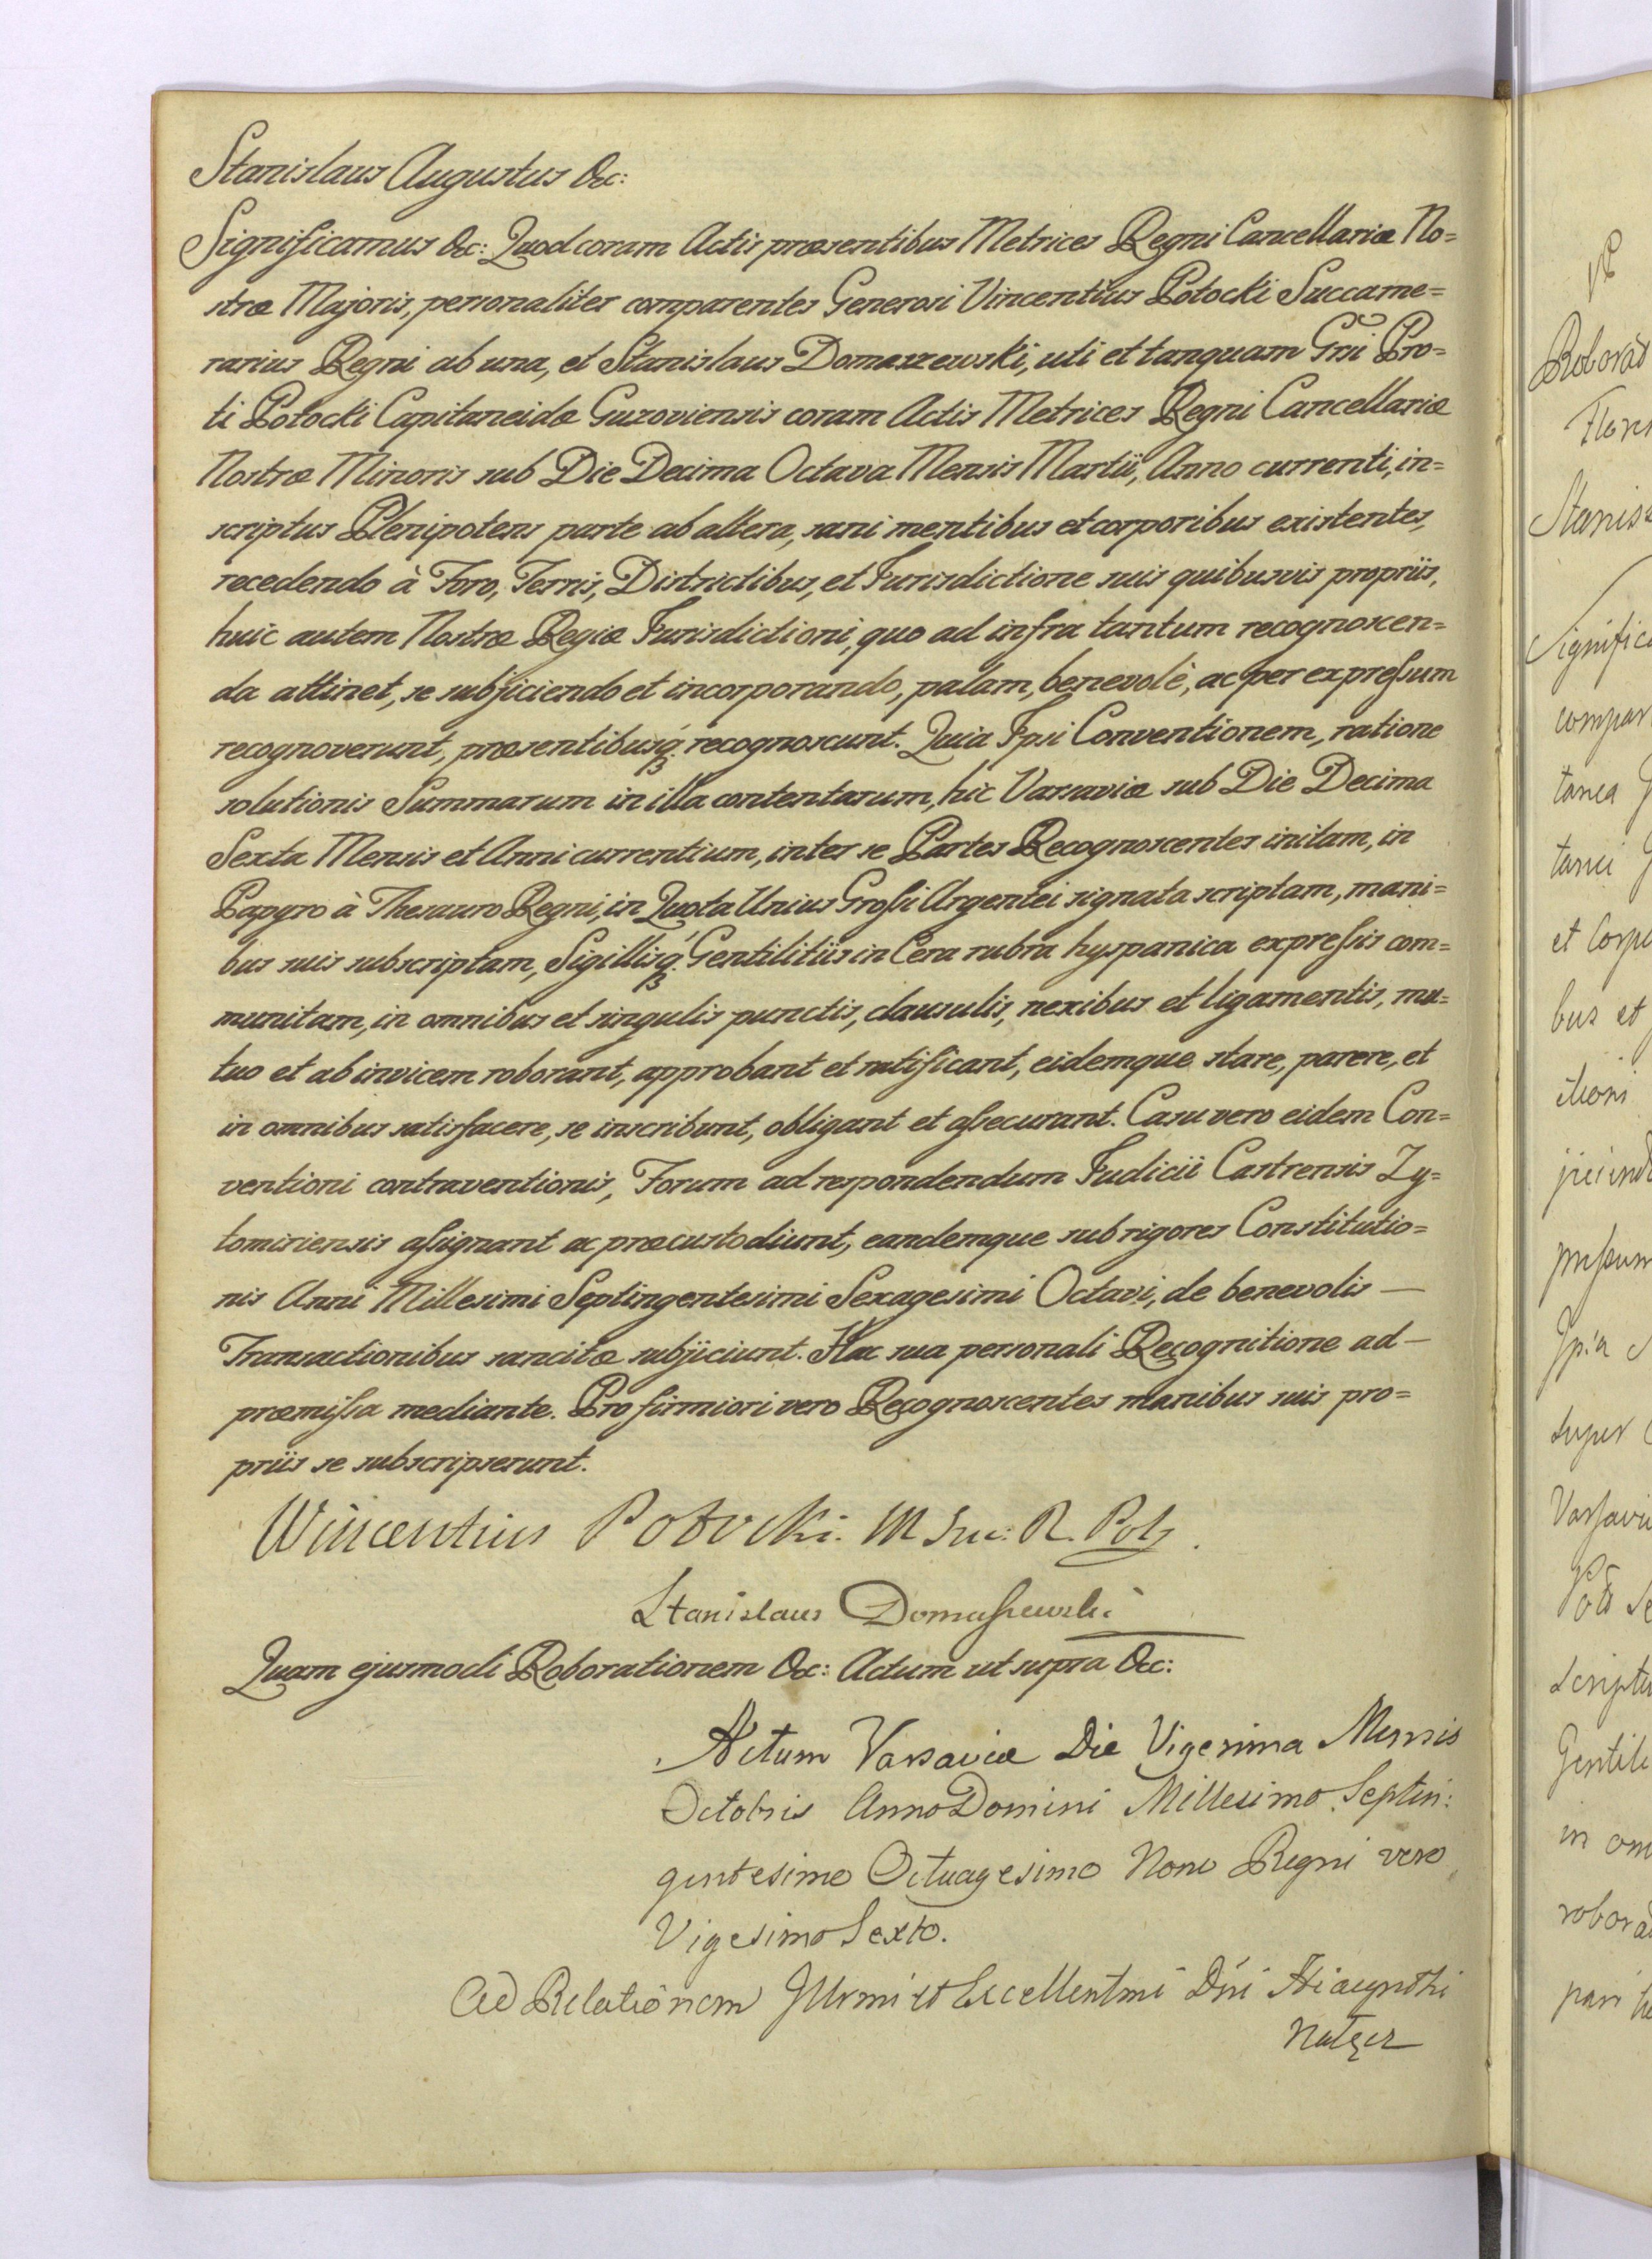 Stanislaus Augustus &c:
Significamus &c: Quod coram Actis præsentibus Metrices Regni Cancellariæ No=
stræ Majoris, personaliter comparentes Generosi Vincentius Potocki Succame=
rarius Regni ab una, et Stanislaus Domaszewski, uti et tanquam Gni Pro=
ti Potocki Capitaneidæ Guzoviensis coram Actis Metrices Regni Cancellariæ
Nostræ Minoris sub Die Decima Octava Mensis Martii, Anno currenti, in=
scriptus Plenipotens parte ab altera, sani mentibus et corporibus existentes,
recedendo à Foro, Terris, Districtibus, et Jurisdictione suis quibusvis propriis,
huic autem Nostræ Regiæ Jurisdictioni, quo ad infra tantum recognoscen=
da attinet, se subjiciendo et incorporando, palam, benevolè, ac per expressum
recognoverunt, præsentibusq; recognoscunt. Quia Ipsi Conventionem, ratione
solutionis Summarum in illa contentarum, hic Varsaviæ sub Die Decima
Sexta Mensis et Anni currentium, inter se Partes Recognoscentes initam, in
Papyro à Thesauro Regni, in Quota Unius Grossi Argentei signata scriptam, mani=
bus suis subscriptam, Sigillisq; Gentilitiis in Cera rubra hyspanica expressis com=
munitam, in omnibus et singulis punctis, clausulis, nexibus et ligamentis, mu=
tuo et ab invicem roborant, approbant et ratificant, eidemque stare, parere, et
in omnibus satisfacere, se inscribunt, obligant et assecurant. Casu vero eidem Con=
ventioni contraventionis, Forum ad respondendum Judicii Castrensis Zy=
tomiriensis assignant ac præcustodiunt, eandemque sub rigores Constitutio=
nis Anni Millesimi Septingentesimi Sexagesimi Octavi, de benevolis —
Transactionibus sancitæ subjiciunt. Hac sua personali Recognitione ad —
præmissa mediante. Pro firmiori vero Recognoscentes manibus suis pro=
priis se subscripserunt.
Wincentius Potocki. M Suc: R. Pol.
Stanislaus Domaszewski
Quam ejusmodi Roborationem &c: Actum ut supra &c:
Actum Varsaviæ Die Vigesima Mensis
Octobris Anno Domini Millesimo Septin:
gentesimo Octuagesimo Nono Regni vero
Vigesimo Sexto.
Ad Relationem Illrmi et Excellentmi Dni Hiacynthi
Roborat
Stanis
Signific
compar
tanea
tanei
et Corp
bus et
itioni
super
Varsavi
script
Gentili
in om
robora